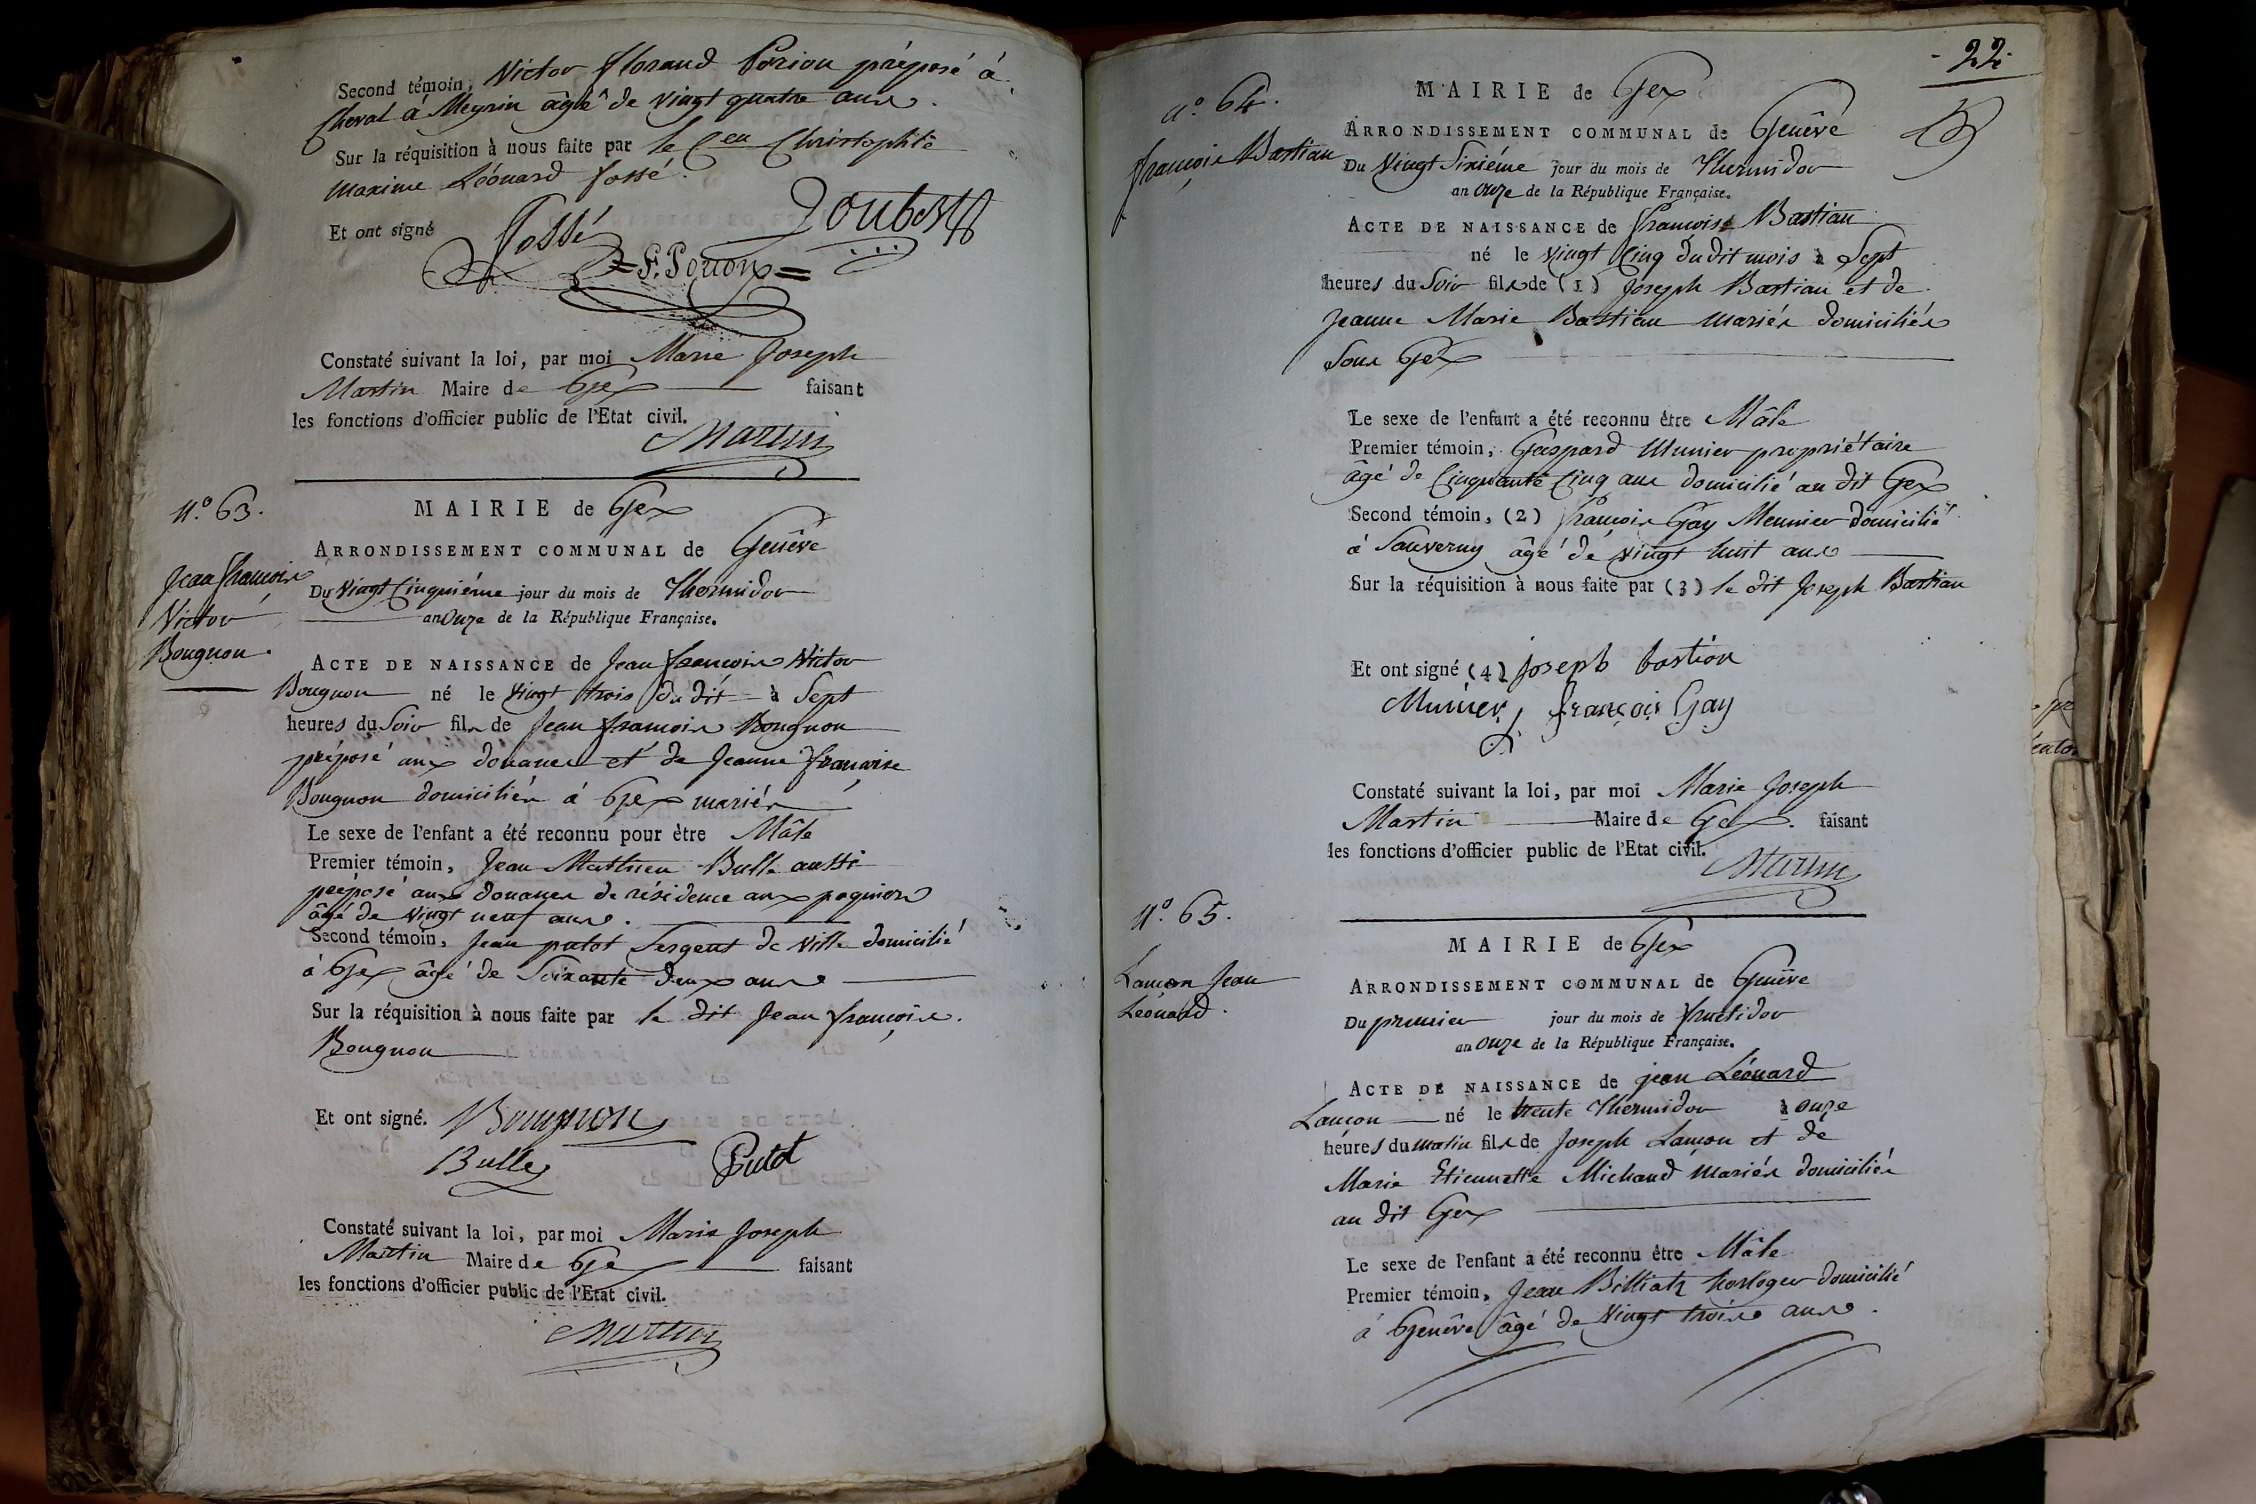 Second témoin, Victor Florand Porion préposé à
Cheval à Meyrin âgé de vingt quatre ans.
Sur la réquisition à nous faite par le Cen Christophle
Maxime Léonard fossé.
Et ont signé
fossé
Joubert
F. Porion
Constaté suivant la loi, par moi Marie Joseph
Martin Maire de Gex faisant
les fonctions d'officier public de l'Etat civil.
Martin
N.° 63.
Jean françois
Victor
Bougnon.
MAIRIE de Gex
ARRONDISSEMENT COMMUNAL de Genêve
Du Vingt Cinquiéme jour du mois de Thermidor
an Onze de la République Française.
ACTE DE NAISSANCE de Jean françois Victor
Bougnon né le vingt trois du dit à Sept
heures du Soir fils de Jean françois Bougnon
préposé aux douanes et de Jeanne françoise
Bougnon domiciliés à Gex mariés
Le sexe de l'enfant a été reconnu pour être Mâle
Premier témoin, Jean Mathieu Bulle aussi
préposé aux douanes de résidence aux
âgé de vingt neuf ans.
Second témoin, Jean putot Sergent de Ville domicilié
à Gex âgé de Soixante deux ans
Sur la réquisition à nous faite par le dit Jean françois
Bougnon
Et ont signé. Bougnon
Bulle Putot
Constaté suivant la loi, par moi Marie Joseph
Martin Maire de Gex faisant
les fonctions d'officier public de l'Etat civil.
Martin
22
n.° 64.
françois Bastian
MAIRIE de Gex
ARRONDISSEMENT COMMUNAL de Genêve
Du Vingt Sixiéme jour du mois de Thermidor
an Onze de la République Française.
ACTE DE NAISSANCE de françois Bastian
né le vingt Cinq du dit mois à Sept
heures du Soir fils de (1) Joseph Bastian et de
Jeanne Marie Bastian mariés domiciliés
Sous Gex
Le sexe de l'enfant a été reconnu être Mâle
Premier témoin, Gaspard Munier propriétaire
âgé de Cinquante Cinq ans domicilié au dit Gex
Second témoin, (2) françois Gay Meunier domicilié
à Sauverny âgé de vingt huit ans
Sur la réquisition à nous faite par (3) le dit Joseph Bastian
Et ont signé (4) joseph bastian
Munier, françois Gay
Constaté suivant la loi, par moi Marie Joseph
Martin Maire de Gex. faisant
les fonctions d'officier public de l'Etat civil.
Martin
N.° 65.
Lançon Jean
Léonard.
MAIRIE de Gex
ARRONDISSEMENT COMMUNAL de Genêve
Du premier jour du mois de fructidor
an Onze de la République Française.
ACTE DE NAISSANCE de jean Léonard
Lançon né le trente Thermidor à onze
heures du matin fils de Joseph Lançon et de
Marie Etiennette Michaud Mariés domiciliés
au dit Gex
Le sexe de l'enfant a été reconnu être Mâle
Premier témoin, Jean Billiatz horloger domicilié
à Genêve âgé de vingt trois ans.